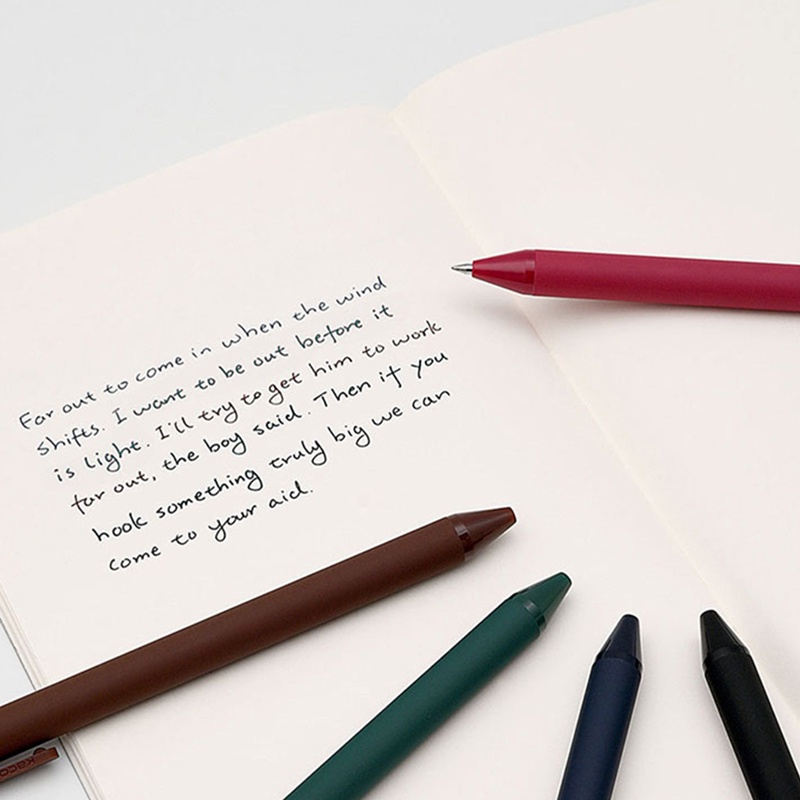 Far out to come in when the wind
shifts. I want to be out before it
is light. I'll try to get him to work
far out, the boy said. Then if you
hook something truly big we can
come to your aid.
KACO